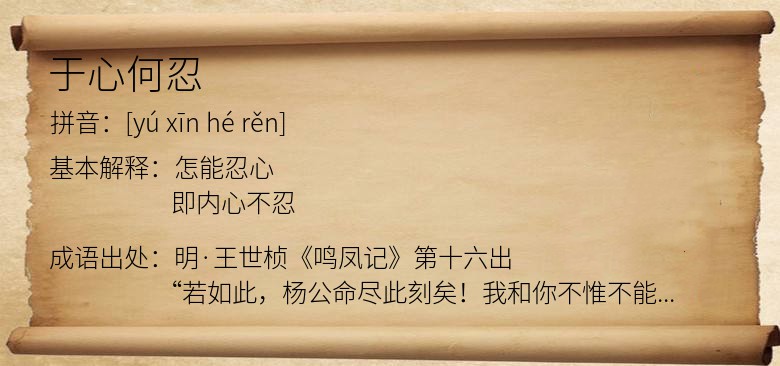 于心何忍
拼音：[yú xīn hé rěn]
基本解释：怎能忍心
即内心不忍
成语出处：明·王世桢《鸣凤记》第十六出
“若如此，杨公命尽此刻矣！我和你不惟不能...